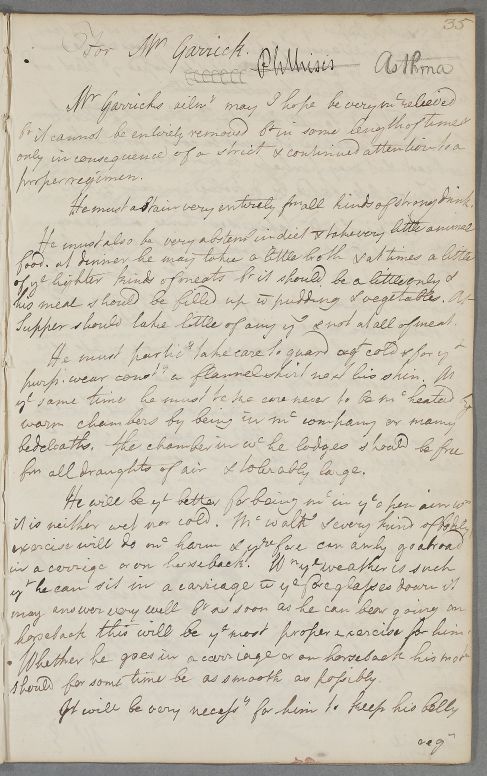 35
For Mr Garrick. Phthisis Asthma
Mr Garricks ailmts may I hope be very mc relieved
bt it cannot be entirely removed bt in some length of time &
only in consequence of a strict & continued attention to a
proper regimen.
He must abstain very entirely fm all kinds of strong drink.
He must also be very abstemt in diet & take very little animal
food. at dinner he may take a little broth & at times a little
of ye lighter kinds of meats bt it should be a little only &
his meal should be filled up w pudding & vegetables. At
Supper should take little of any yg & not at all of meat.
He must particly take care to guard agt cold & for yt
purp. wear constly a flannel shirt next his skin. At
ye same time he must take care never to be mc heated by
warm chambers by being in mc company or many
bedcloaths. the chamber in wc he lodges should be free
fm all draughts of air & tolerably large.
He will be ye better for being mc in ye open air wn
it is neither wet nor cold. Mc walkg & every kind of bodily
exercise will do mc harm & yrefore can only go abroad
in a carriage or on horseback. Wn ye weather is such
yt he can sit in a carriage w ye fore glasses down it
may answer very well bt as soon as he can bear going on
horseback this will be ye most proper exercise for him.
Whether he goes in a carriage or on horseback his motn
should for some time be as smooth as possibly.
It will be very necessy for him to keep his belly
regr